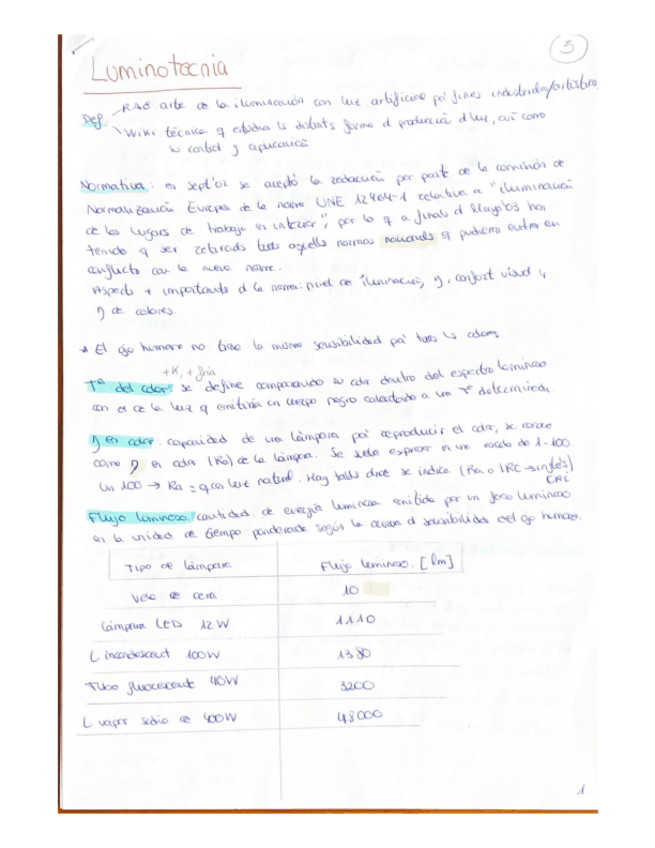 5
Luminotecnia
Def RAE: arte de la iluminación con luz artificial pa' fines industriales/artísticos
Wiki técnica q estudia ls distints forms d producción d luz, así como
su control y aplicación
Normativa: en sept'02 se aceptó la redacción por parte de la comisión de
Normalización Europea de la norma UNE 12464-1 relativa a "iluminación
de los lugars de trabajo en interior", por lo q a finals d Mayo'03 han
tenido q ser retirads tods aquells normas nacionals q pudieran entrar en
conflicto con la nueva norma.
Aspects + importants d la norma: nivel de iluminación, η, confort visual y
η de colores.
* El ojo humano no tiene la misma sensibilidad pa' tods ls colores
+K, + fría
Tª del color: se define comparando su color dentro del espectro luminoso
con el de la luz q emitiría un cuerpo negro calentado a una Tª determinada.
η en color: capacidad de una lámpara pa' reproducir el color, se conoce
como η en color (Ra) de la lámpara. Se suele expresar en una escala de 1-100
Un 100 → Ra = q con luz natural. Hay tabls dond se indica (Ra o IRC → inglés)
CRI
Flujo luminoso: cantidad de energía luminosa emitida por un foco luminoso
en la unidad de tiempo ponderada según la curva d sensibilidad del ojo humano.
Tipo de lámpara Flujo luminoso [lm]
Vela de cera 10
Lámpara LED 12W 1110
L incandescent 100W 1380
Tubo fluorescente 40W 3200
L vapor sodio de 400W 48000
1